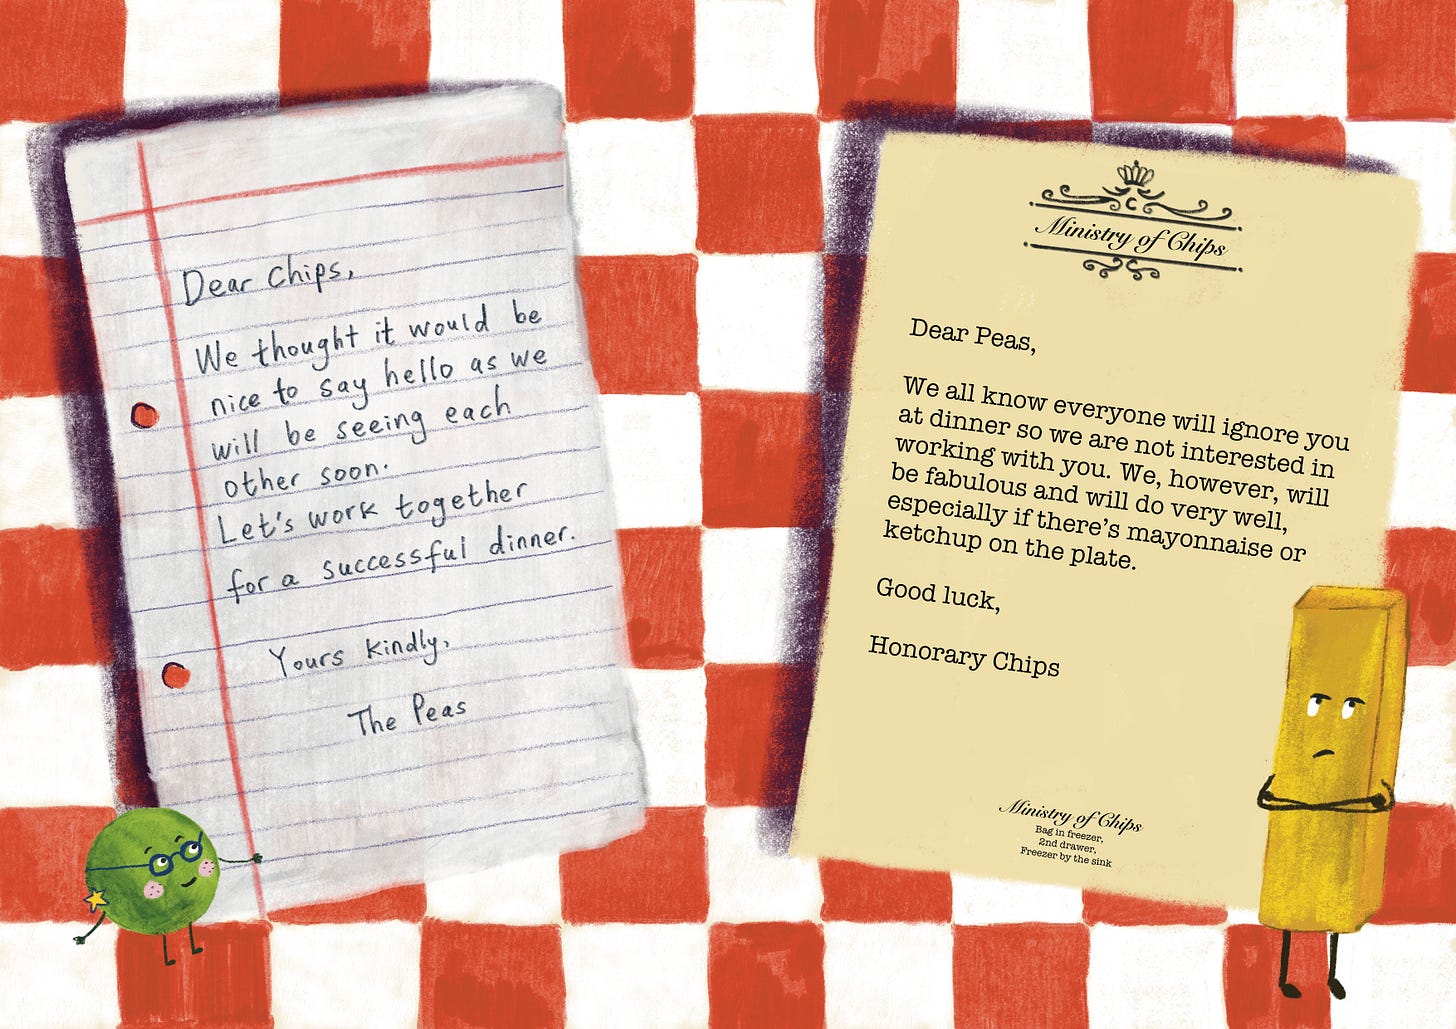 Dear Chips,
We thought it would be
nice to say hello as we
will be seeing each
other soon.
Let's work together
for a successful dinner.
Yours kindly,
The Peas
C
Ministry of Chips
Dear Peas,
We all know everyone will ignore you
at dinner so we are not interested in
working with you. We, however, will
be fabulous and will do very well,
especially if there's mayonnaise or
ketchup on the plate.
Good luck,
Honorary Chips
Ministry of Chips
Bag in freezer,
2nd drawer,
Freezer by the sink